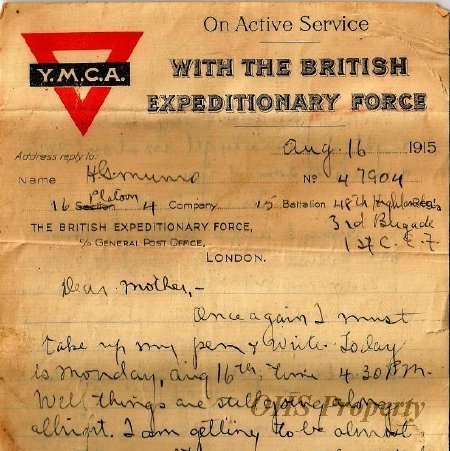 On Active Service
Y.M.C.A.
WITH THE BRITISH
EXPEDITIONARY FORCE
Aug. 16 1915
Address reply to:-
Name H S Munro No 47904
Platoon
16 Section 4 Company 15 Battalion 48th Highlanders
THE BRITISH EXPEDITIONARY FORCE, 3rd Brigade
c/o GENERAL POST OFFICE, 1st C. E. F.
LONDON.
Dear Mother,-
Once again I must
take up my pen & write. Today
is Monday, Aug 16th, time 4.30 P.M.
Well things are still going along
allright. I am getting to be almost
OHS Property